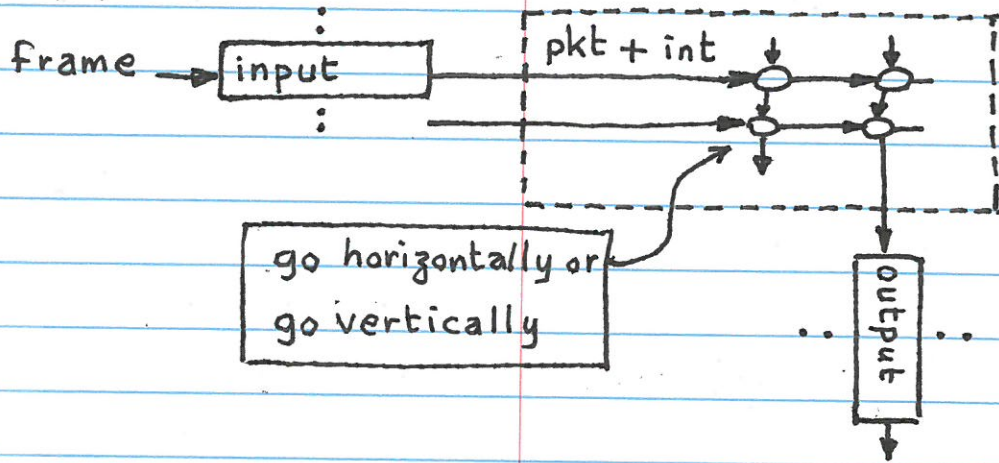 frame
input
pkt + int
go horizontally or
go vertically
output